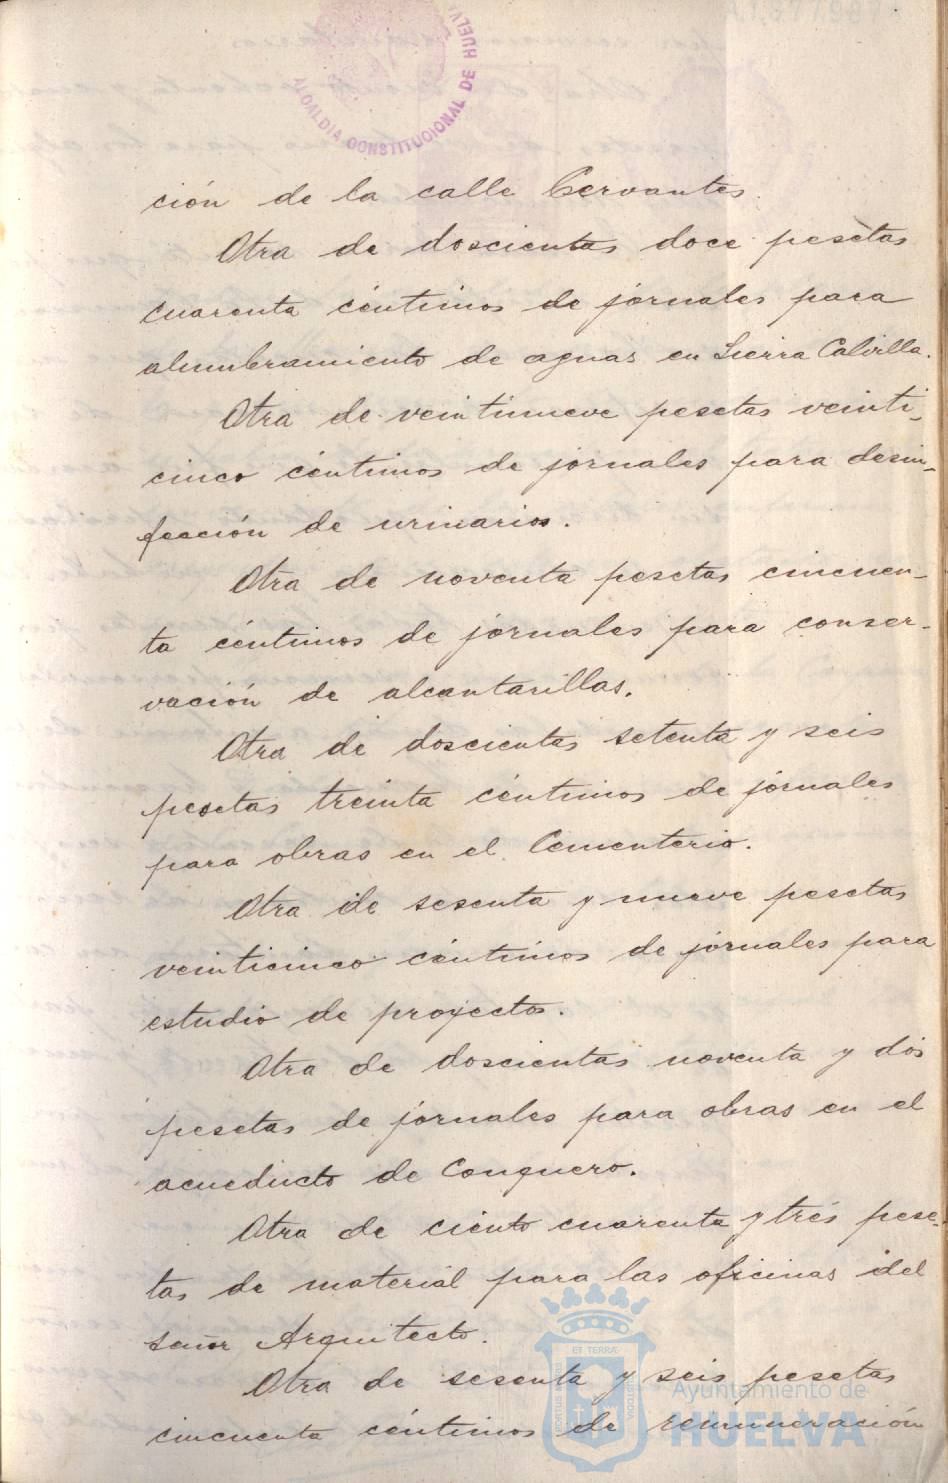 A.1.877.987
ALCALDIA CONSTITUCIONAL DE HUELVA
ción de la calle Cervantes.
Otra de doscientas doce pesetas
cuarenta céntimos de jornales para
alumbramiento de aguas en Sierra Calvilla.
Otra de veintinueve pesetas veinti-
cinco céntimos de jornales para desin-
fección de urinarios.
Otra de noventa pesetas cincuen-
ta céntimos de jornales para conser-
vación de alcantarillas.
Otra de doscientas setenta y seis
pesetas treinta céntimos de jornales
para obras en el Cementerio.
Otra de sesenta y nueve pesetas
veinticinco céntimos de jornales para
estudio de proyectos.
Otra de doscientas noventa y dos
pesetas de jornales para obras en el
acueducto de Conquero.
Otra de ciento cuarenta y tres pese-
tas de material para las oficinas del
señor Arquitecto.
Otra de sesenta y seis pesetas
cincuenta céntimos de remuneración
ET TERRÆ
PORTUS MARIS
CUSTODIA
Ayuntamiento de
HUELVA